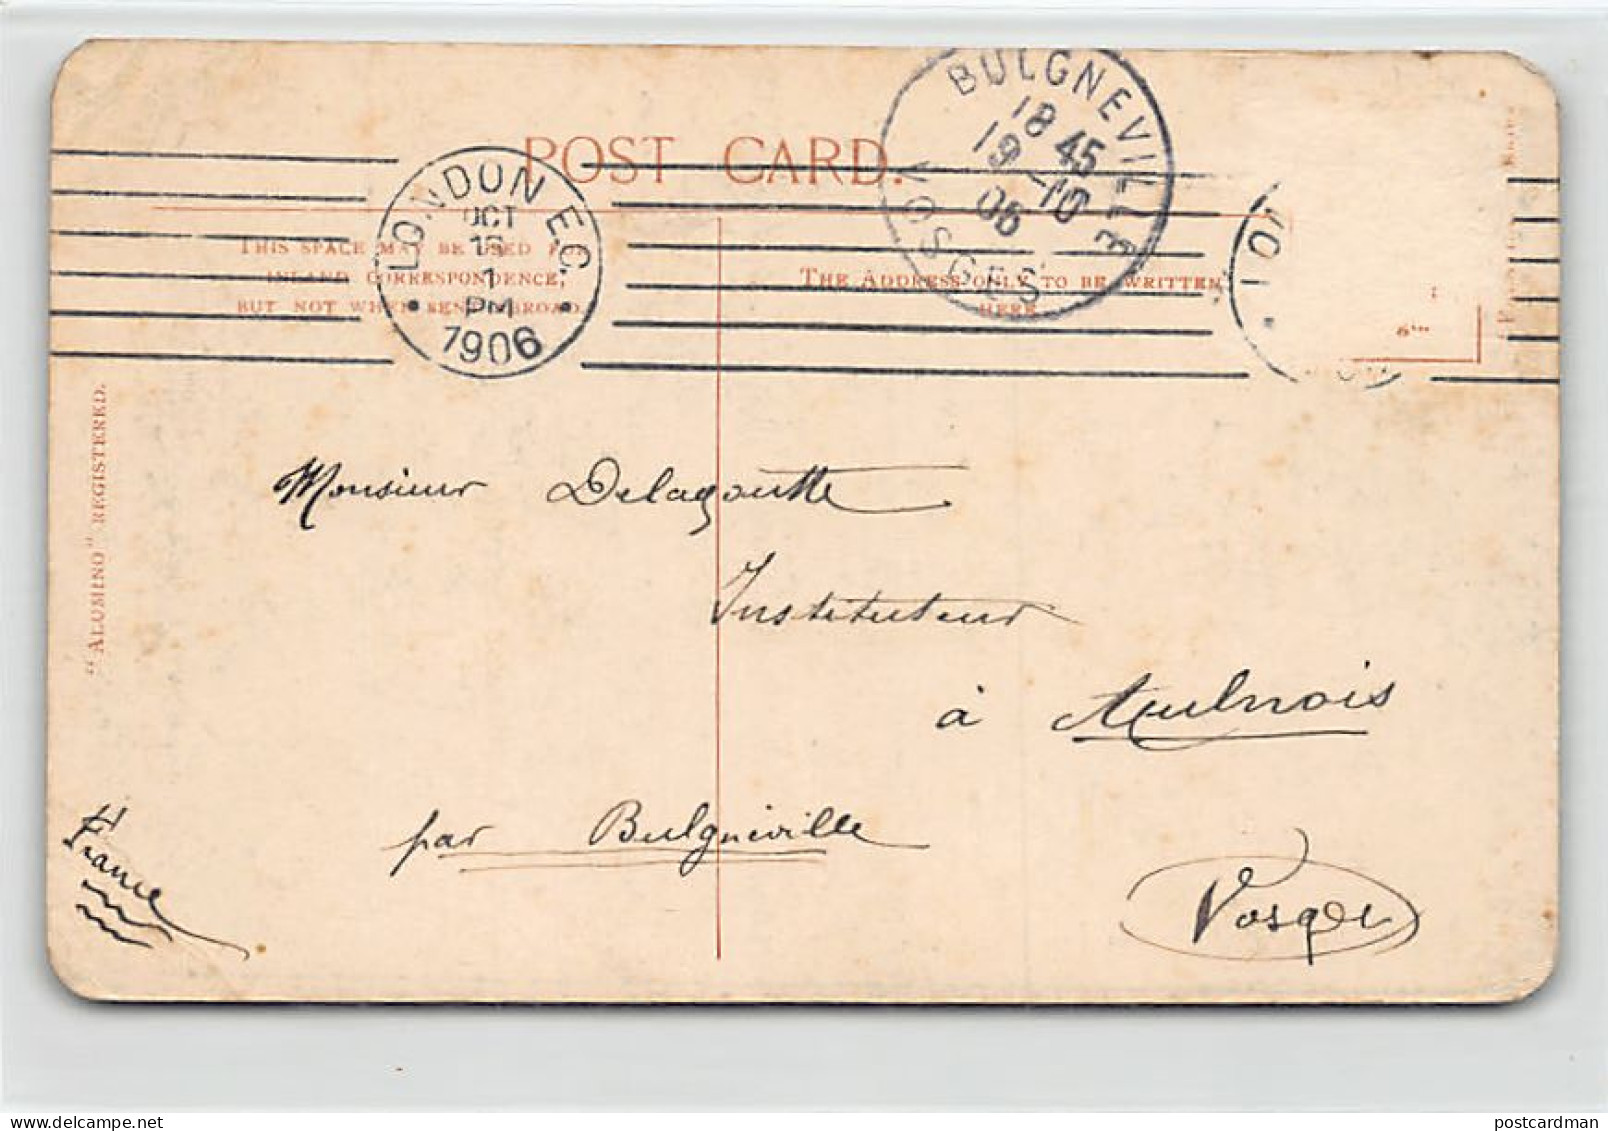 POST CARD.
THIS SPACE MAY BE USED
INLAND CORRESPONDENCE,
BUT NOT WHEN SEN ABROAD.
THE ADDRESS ONLY TO BE WRITTEN
HERE
LONDON E.C.
OCT
1 PM
1906
BULGNEVILLE
18 45
19 -10
06
VOSGES
"ALUMINO" REGISTERED.
Monsieur Delagoutte
Instituteur
à Aulnois
par Bulgnéville
Vosges
France
postcardman